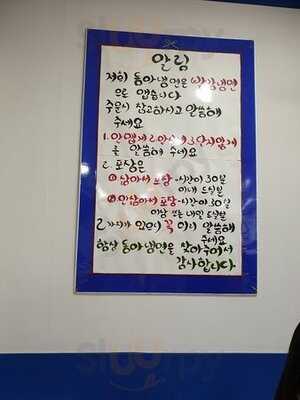 알림
저희 동아냉면은 비빔냉면
으로 맵습니다
주문시 참고하시고 말씀해
주세요
1. 안맵게 2. 안 3. 달지않게
를 말씀해 주세요
2. 포장은
① 삶아서 포장 - 시간이 30분
이내 드실분
② 안삶아서 포장 - 시간이 30분
이상 또는 내일 드실분
2가지가 있으니 꼭 미리 말씀해
주세요
항상 동아냉면을 찾아주셔서
감사합니다